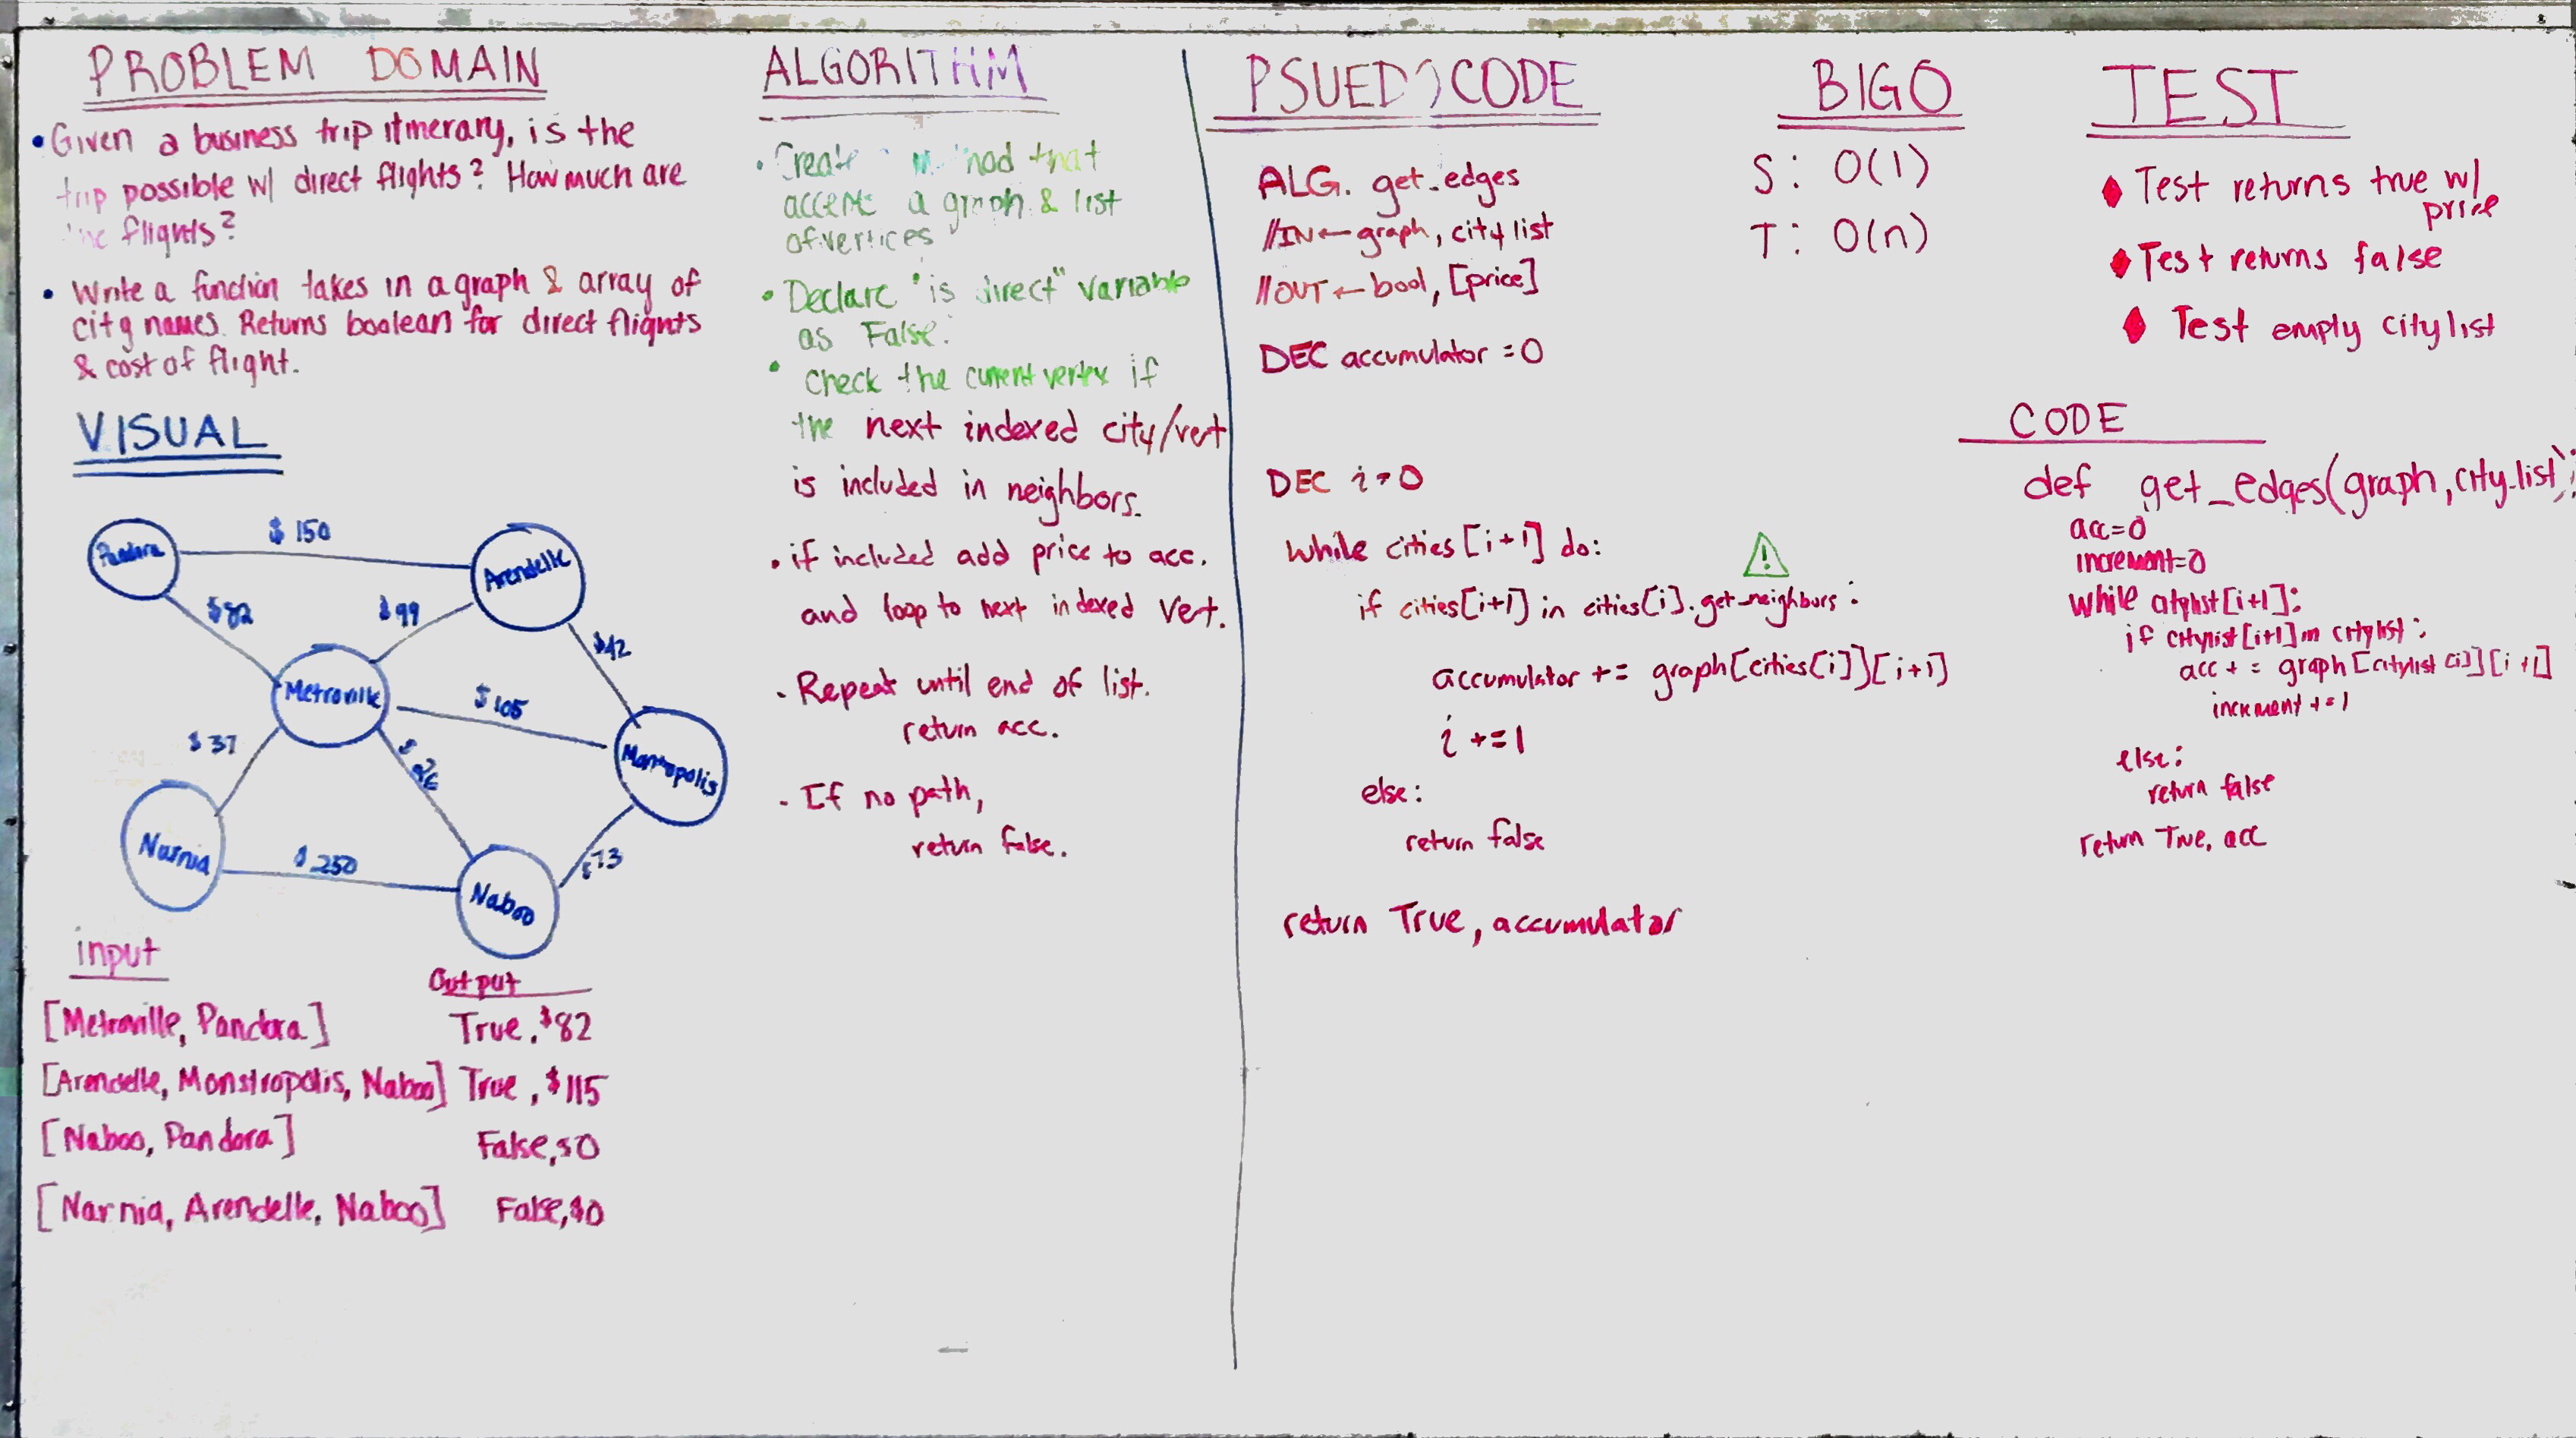 PROBLEM DOMAIN
• Given a business trip itinerary, is the
trip possible w/ direct flights? How much are
the flights?
• Write a function takes in a graph & array of
city names. Returns boolean for direct flights
& cost of flight.
VISUAL
Pandora
$150
Arendelle
$82
$99
$42
Metroville
$105
Monstropolis
$37
$26
Narnia
$250
Naboo
$73
input
Output
[Metroville, Pandora] True, $82
[Arendelle, Monstropolis, Naboo] True, $115
[Naboo, Pandora] False, $0
[Narnia, Arendelle, Naboo] False, $0
ALGORITHM
• Create method that
accepts a graph & list
of vertices
• Declare "is direct" variable
as False.
• Check the current vertex if
the next indexed city/vert
is included in neighbors.
• if included add price to acc.
and loop to next indexed vert.
- Repeat until end of list.
return acc.
- If no path,
return false.
PSUEDOCODE
ALG. get_edges
//IN ← graph, city list
//OUT ← bool, [price]
DEC accumulator = 0
DEC i = 0
while cities[i+1] do:
if cities[i+1] in cities[i].get_neighbors:
accumulator += graph[cities[i]][i+1]
i += 1
else:
return false
return True, accumulator
BIG O
S: O(1)
T: O(n)
TEST
♦ Test returns true w/
price
♦ Test returns false
♦ Test empty city list
CODE
def get_edges(graph, city_list):
acc=0
increment=0
while citylist[i+1]:
if citylist[i+1] in citylist:
acc += graph[citylist[i]][i+1]
increment += 1
else:
return false
return True, acc